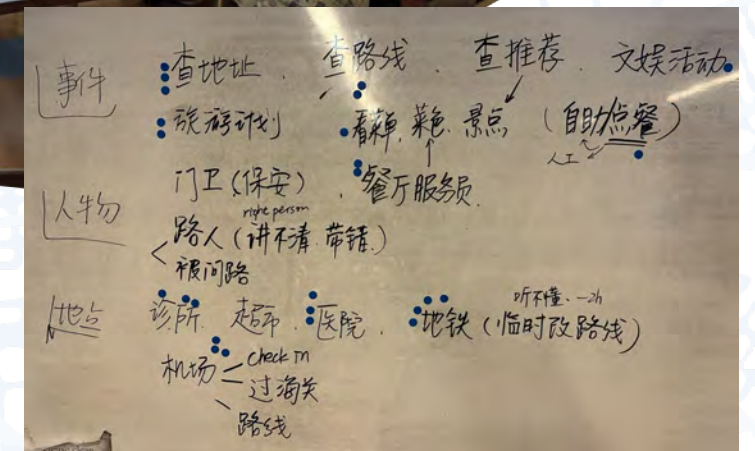 事件
查地址、查路线、查推荐、文娱活动
旅游计划 看菜单、菜色、景点（自助点餐）
人工
人物
门卫（保安）、餐厅服务员
right person
路人（讲不清、带错）
被问路
地点
听不懂、-2h
诊所、超市、医院、地铁（临时改路线）
机场 check in
过海关
路线